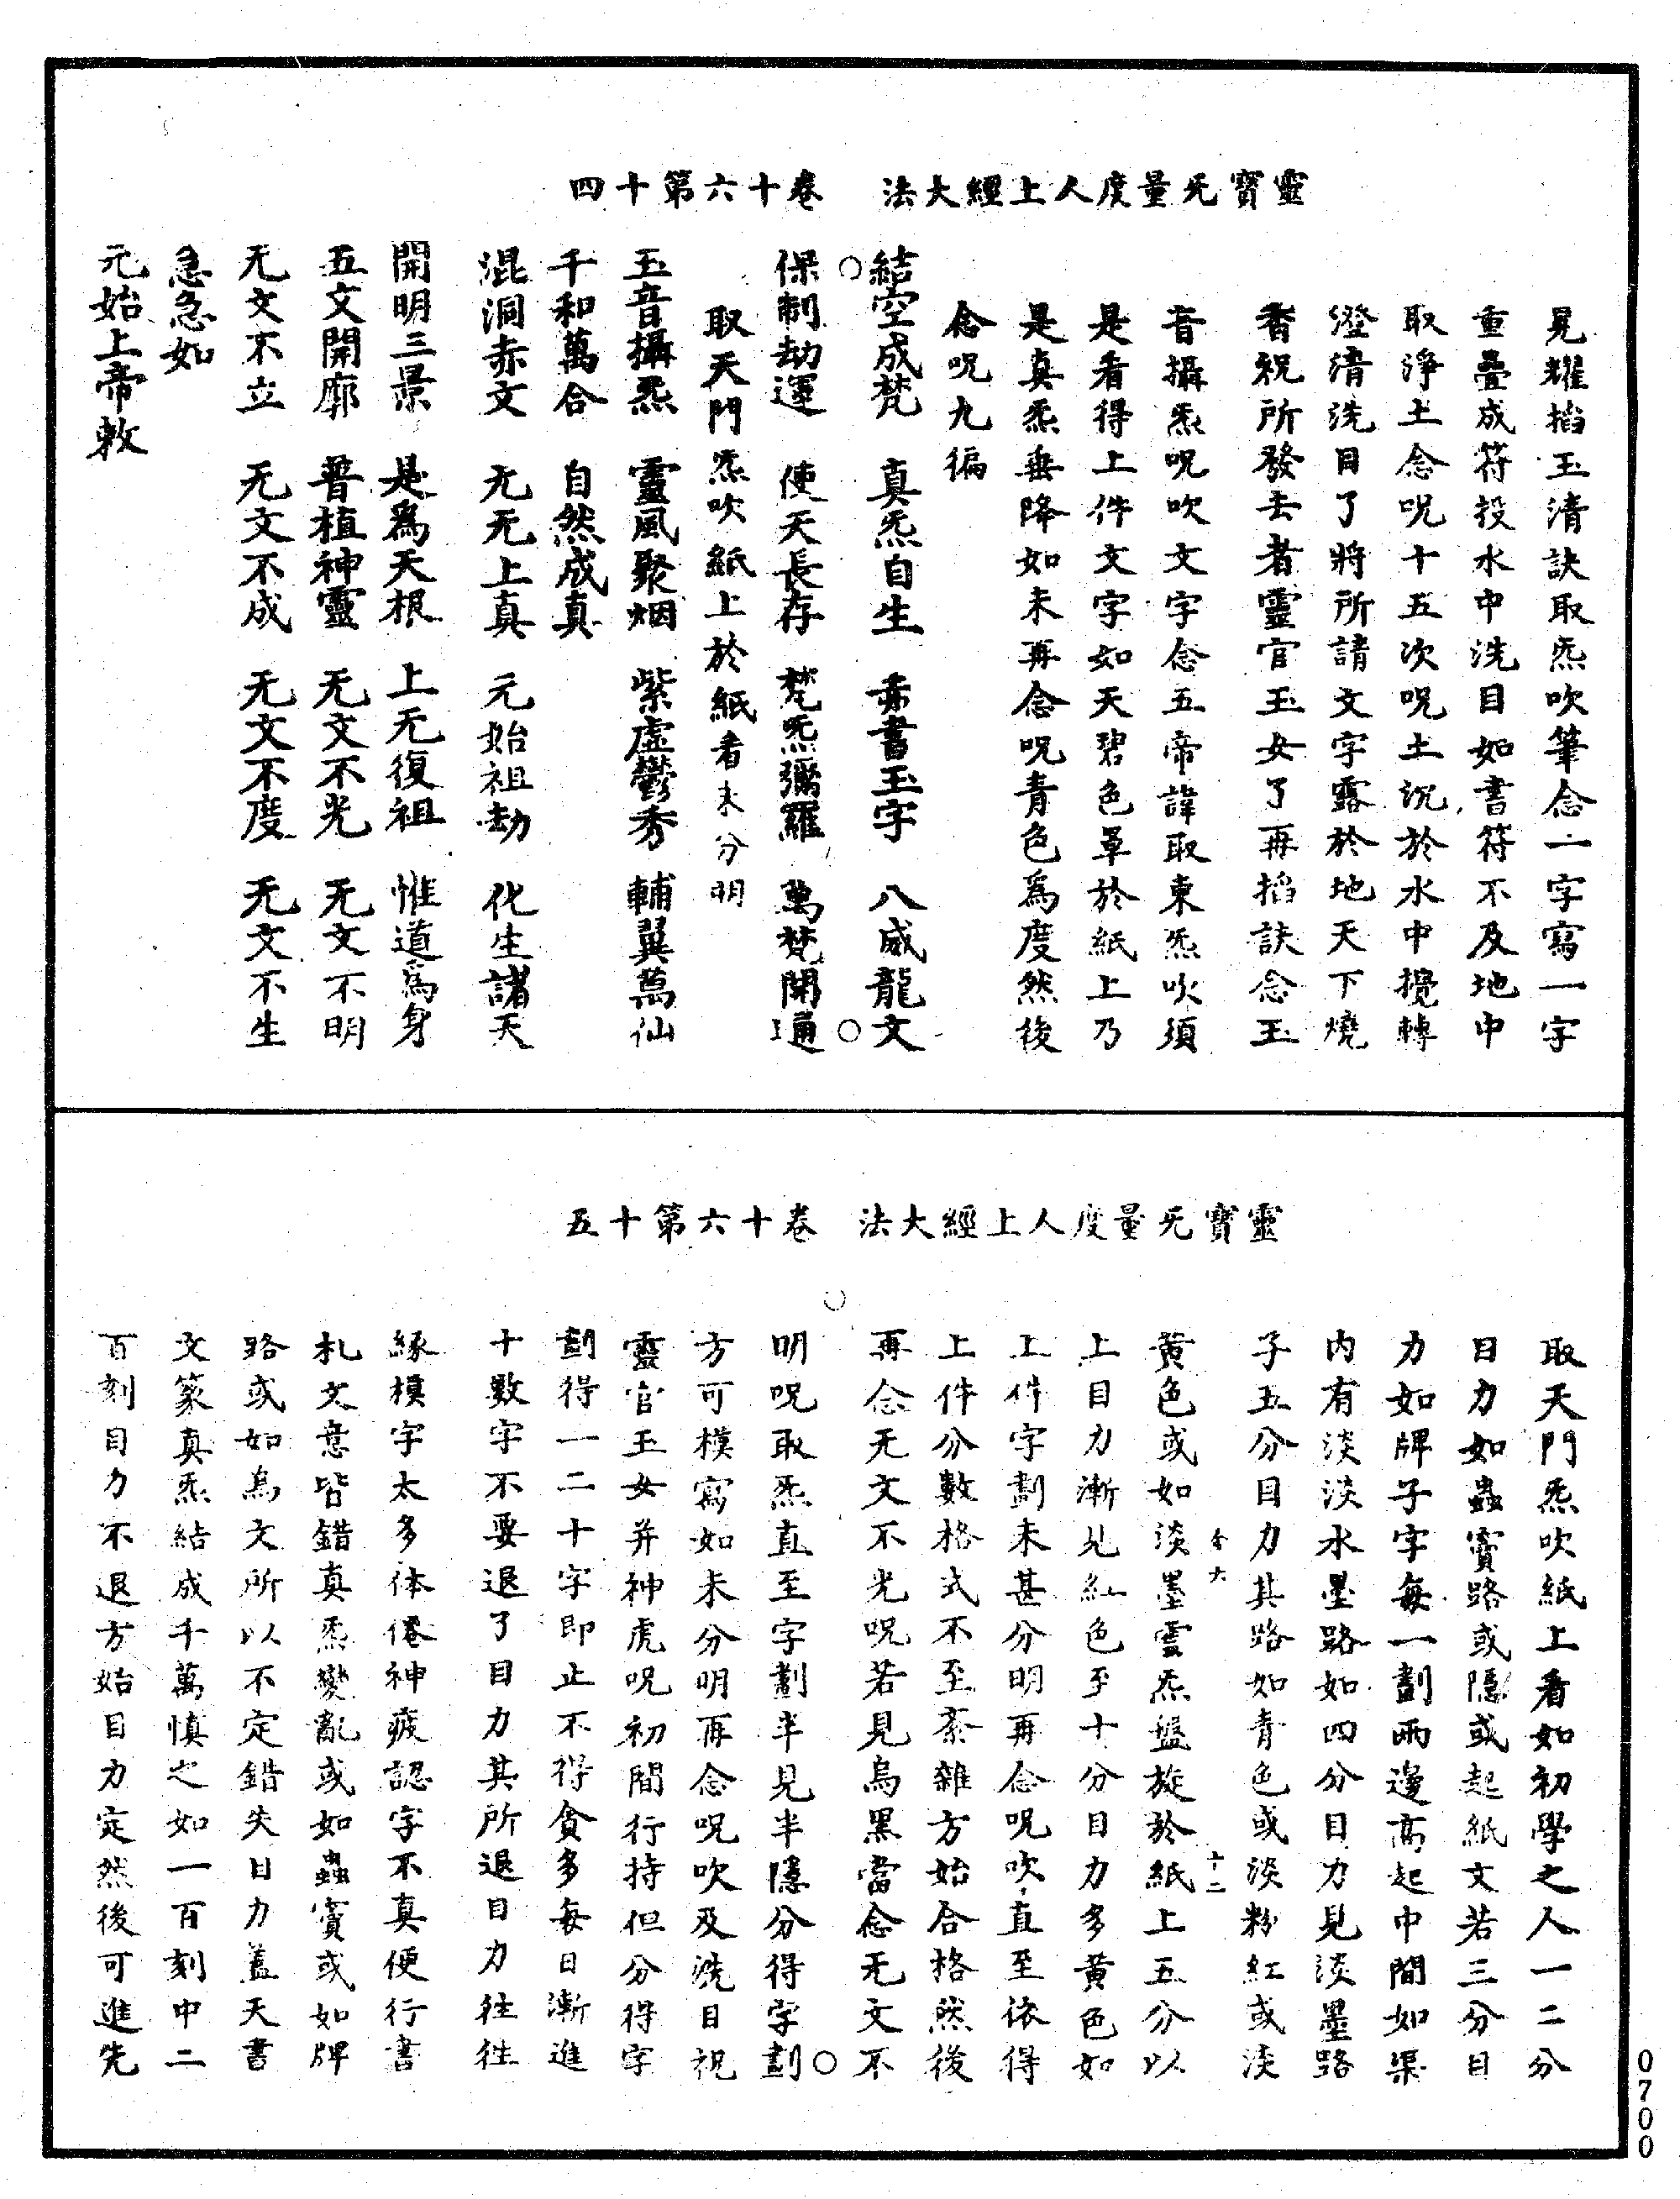 靈寶无量度人上經大法　卷十六第十四
晃耀掐玉清訣取炁吹筆念一字寫一字
重疊成符投水中洗目如書符不及地中
取淨土念呪十五次呪土沉於水中攪轉
澄清洗目了將所請文字露於地天下燒
香祝所發去者靈官玉女了再掐訣念玉
音攝炁呪吹文字念五帝諱取東炁吹須
是看得上件文字如天碧色罩於紙上乃
是真炁垂降如未再念呪青色為度然後
念呪九徧
結空成梵　真炁自生　赤書玉字　八威龍文
保制劫運　使天長存　梵炁彌羅　萬梵開通
取天門炁吹紙上於紙看未分明
玉音攝炁　靈風聚烟　紫虛鬱秀　輔翼萬仙
千和萬合　自然成真
混洞赤文　无无上真　元始祖劫　化生諸天
開明三景　是為天根　上无復祖　惟道為身
五文開廓　普植神靈　无文不光　无文不明
无文不立　无文不成　无文不度　无文不生
急急如
元始上帝敕
靈寶无量度人上經大法　卷十六第十五
取天門炁吹紙上看如初學之人一二分
目力如蟲竇路或隱或起紙文若三分目
力如牌子字每一劃兩邊高起中間如渠
內有淡淡水墨路如四分目力見淡墨路
子五分目力其路如青色或淡粉紅或淡
黃色或如淡墨雲炁盤旋於紙上五分以
上目力漸見紅色至十分目力多黃色如
上件字劃未甚分明再念呪吹直至依得
上件分數格式不至紊雜方始合格然後
再念无文不光呪若見烏黑當念无文不
明呪取炁直至字劃半見半隱分得字劃
方可模寫如未分明再念呪吹及洗目祝
靈官玉女并神虎呪初間行持但分得字
劃得一二十字即止不得貪多每日漸進
十數字不要退了目力其所退目力往往
緣模字太多体倦神疲認字不真便行書
札文意皆錯真炁變亂或如蟲竇或如牌
路或如為文所以不定錯失目力蓋天書
文篆真炁結成千萬慎之如一百刻中二
百刻目力不退方始目力定然後可進先
0700